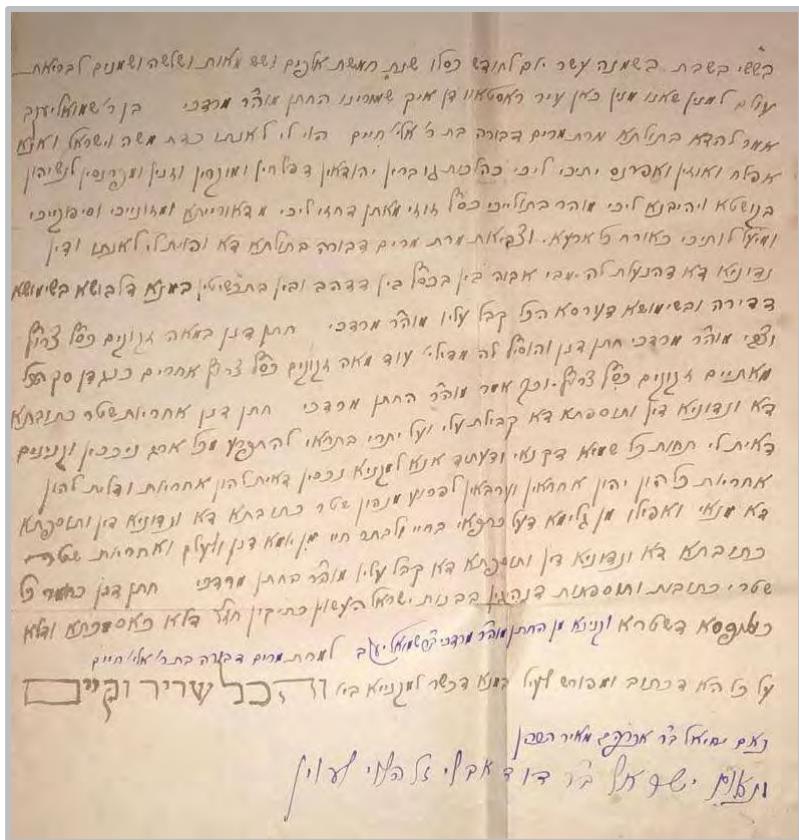 בששי בשבת בשמנה עשר יום לחודש כסלו שנת חמשת אלפים ושש מאות ושלשה ושמנים לבריאת
עולם למנין שאנו מנין כאן עיר ראסטאוו דן איך שמורינו החתן מוה״ר מרדכי בן ר׳ שמואל יעקב
אמר להדא בתולתא מרת מרים דבורה בת ר׳ אלי׳ חיים הוי לי לאנתו כדת משה וישראל ואנא
אפלח ואוקיר ואיזון ואפרנס יתיכי ליכי כהלכות גוברין יהודאין דפלחין ומוקרין וזנין ומפרנסין לנשיהון
בקושטא ויהיבנא ליכי מוהר בתולייכי כסף זוזי מאתן דחזי ליכי מדאורייתא ומזונייכי וכסותייכי וסיפוקייכי
ומיעל לותיכי כאורח כל ארעא. וצביאת מרת מרים דבורה בתולתא דא והות לי׳ לאנתו ודין
נדוניא דא דהנעלת לי׳ מבי אבוה בין בכסף בין בדהב ובין בתכשיטין במאנא דלבושא בשימושא
דדירה ובשימושא דערסא הכל קבל עליו מוה״ר מרדכי חתן דנן במאה זקוקים כסף צרוף
וצבי מוה״ר מרדכי חתן דנן והוסיף לה מדילי׳ עוד מאה זקוקים כסף צרוף אחרים כנגדן סך הכל
מאתיים זקוקים כסף צרוף. וכך אמר מוה״ר החתן מרדכי חתן דנן אחריות שטר כתובתא
דא ונדוניא דין ותוספתא דא קבילת עלי ועל ירתי בתראי להתפרע מכל ארג נכסין וקנינים
דאית לי תחות כל שמיא דקנאי ודעתיד אנא למקניא נכסין דאית להון אחריות ודלית להון
אחריות כלהון יהון אחראין וערבאין לפרוע מנהון שטר כתובתא דא ונדוניא דין ותוספתא
דא מנאי ואפילו מן גלימא דעל כתפאי בחיי ולבתר חיי מן יומא דנן ולעלם ואחריות שטר
כתובתא דא ונדוניא דין ותוספתא דא קבל עליו מוה״ר החתן מרדכי חתן דנן כחומר כל
שטרי כתובות ותוספתות דנהגין בבנות ישראל העשוין כתיקון חז״ל דלא כאסמכתא ודלא
כטופסא דשטרא וקנינא מן החתן מוה״ר מרדכי ב״ר שמואל יעקב למרת מרים דבורה בת ר׳ אלי׳ חיים
על כל הא דכתוב ומפורש לעיל במנא דכשר למקנייא ביה והכל שריר וקיים
נאם יחיאל ב״ר מאיר הכהן
ונאום ישראל ב״ר דוד הלוי